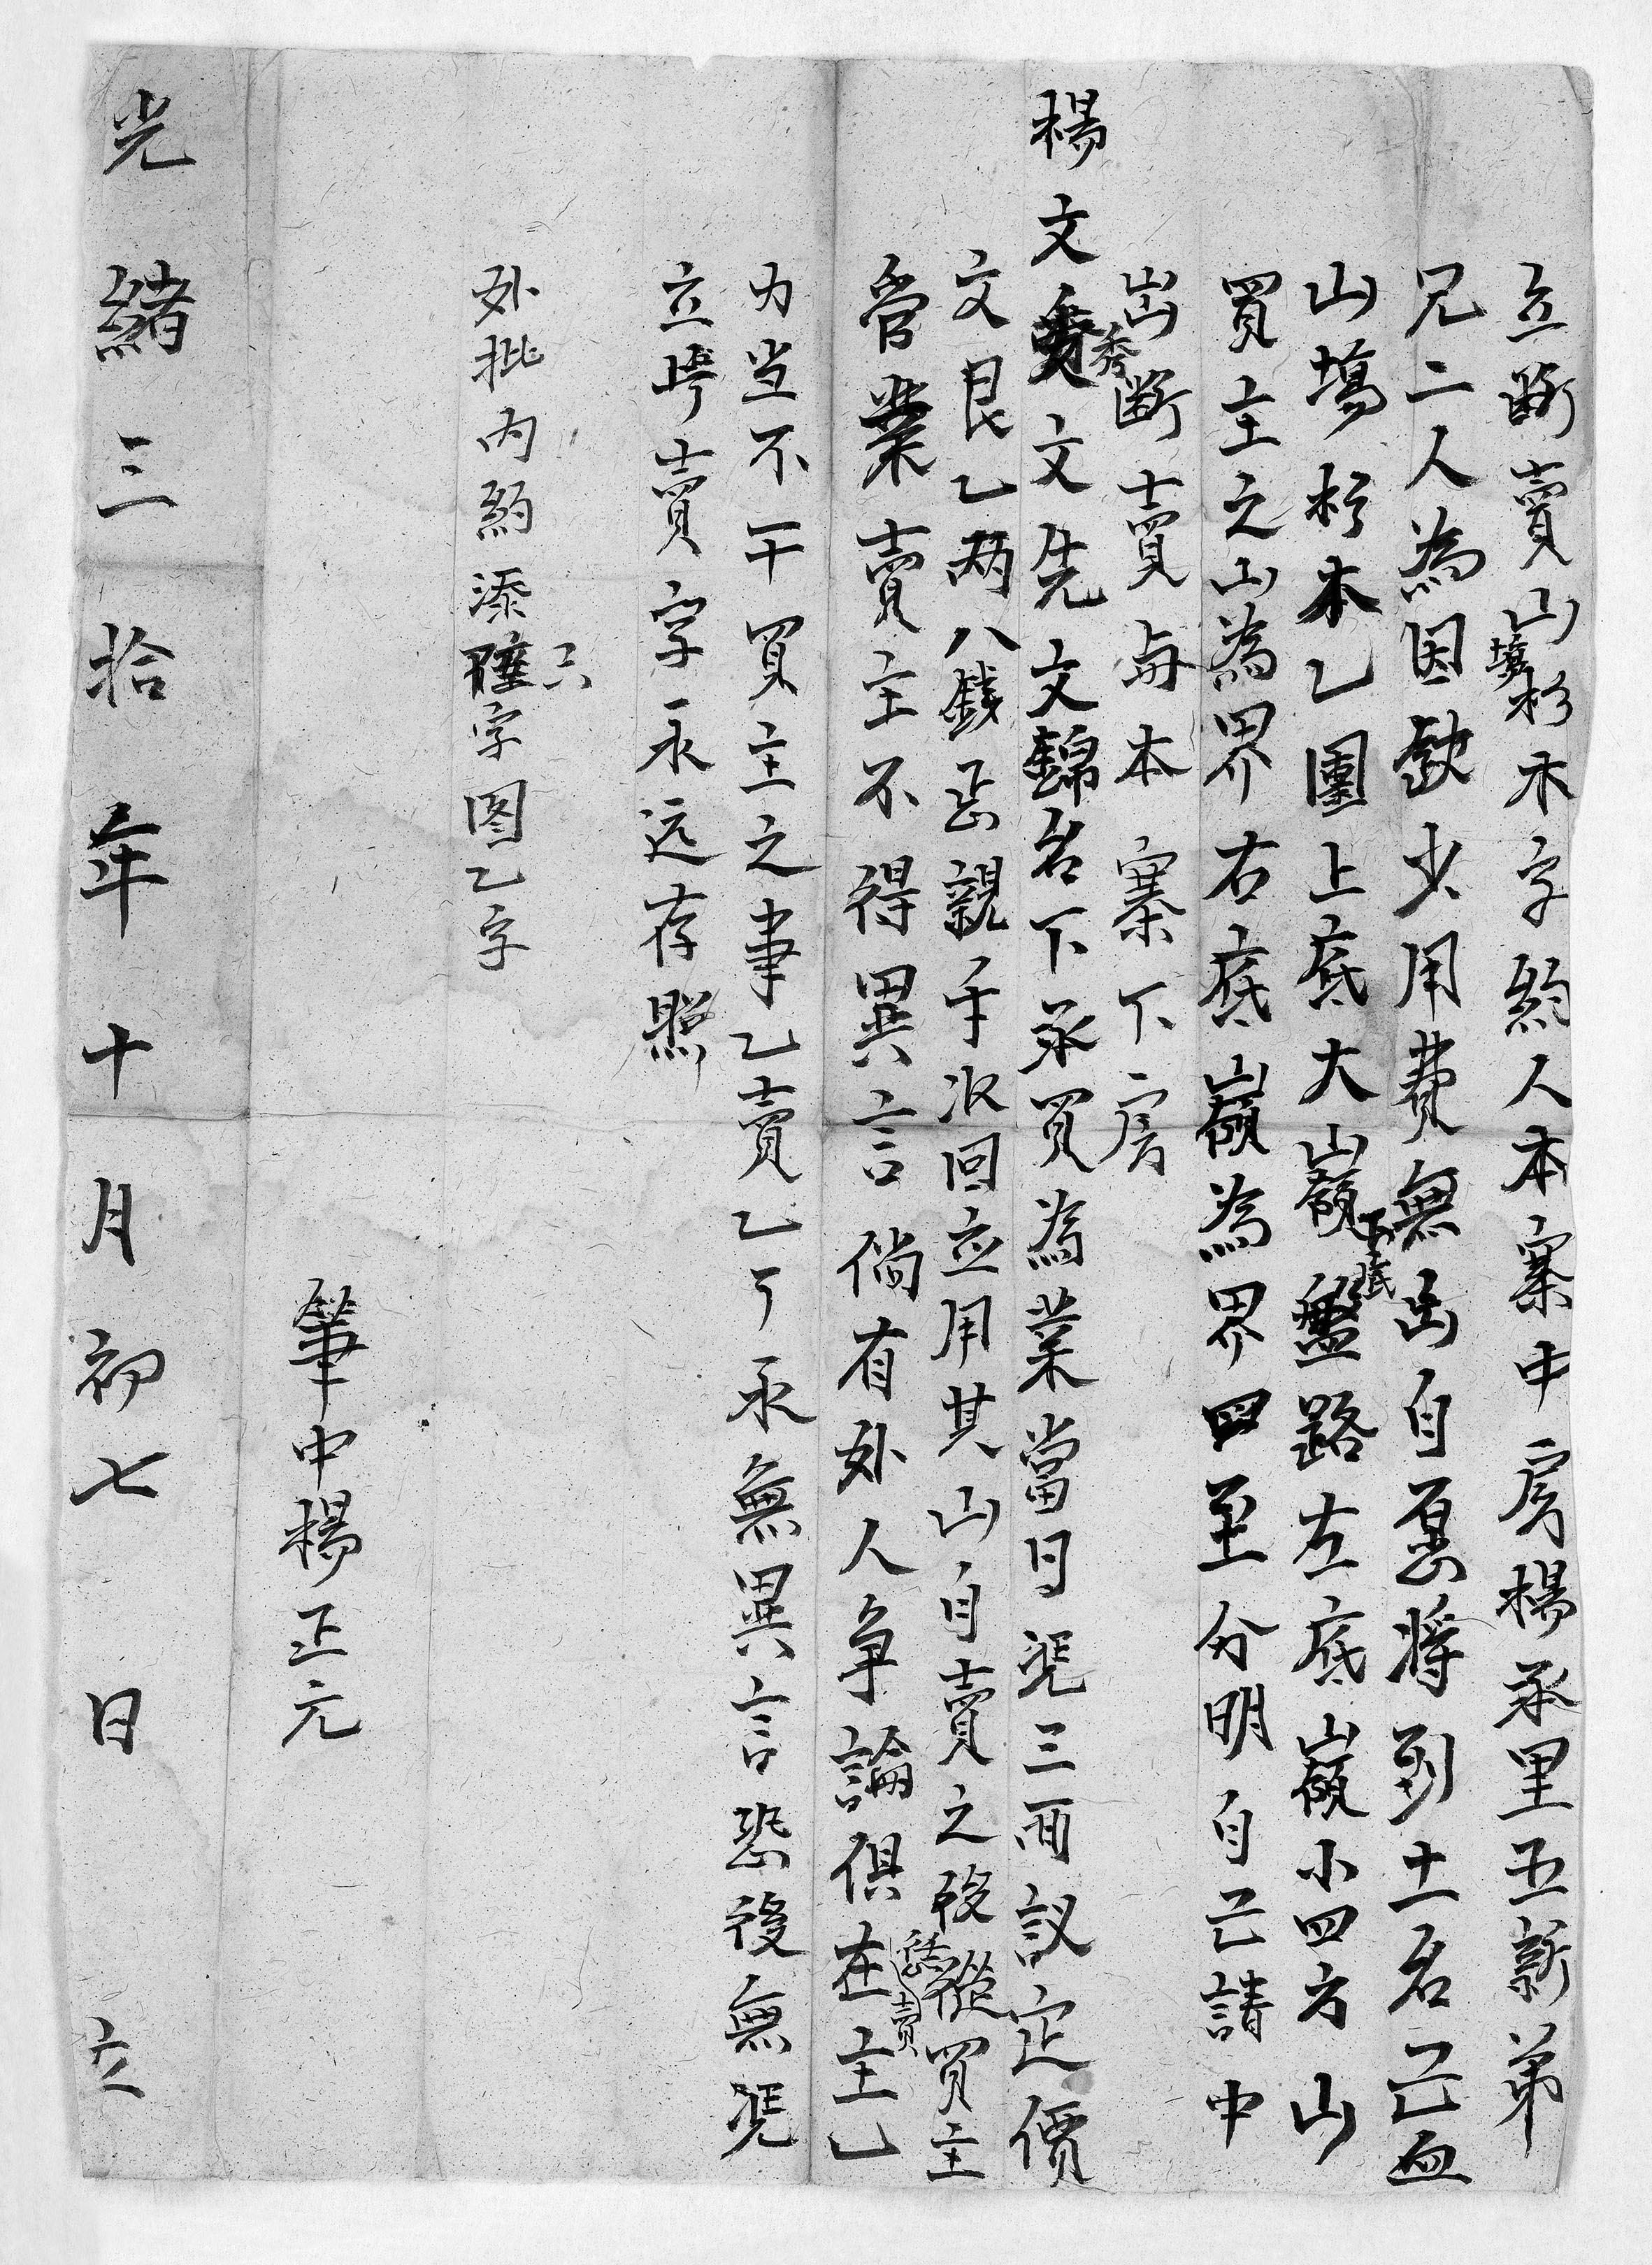 立断賣山塲杉木字約人本寨中房楊承里五新弟
兄二人為因缺少用費無出自愿將到土名己血
山塲杉木乙團上底大山嶺下底盤路左底山嶺小四方山
買主之山為界右底嶺為界四至分明自己請中
出断賣与本寨下房
楊文秀文先文錦名下承買為業當日凴三面議定價
文艮乙两八錢正親手収回应用其山自賣之後恁從買主
管業賣主不得異言倘有外人争論俱在賣主乙
力当不干買主之事乙賣乙了永無異言恐後無凴
立断賣字永远存照
外批内約添六字图乙字
筆中楊正元
光緒三拾年十月初七日立